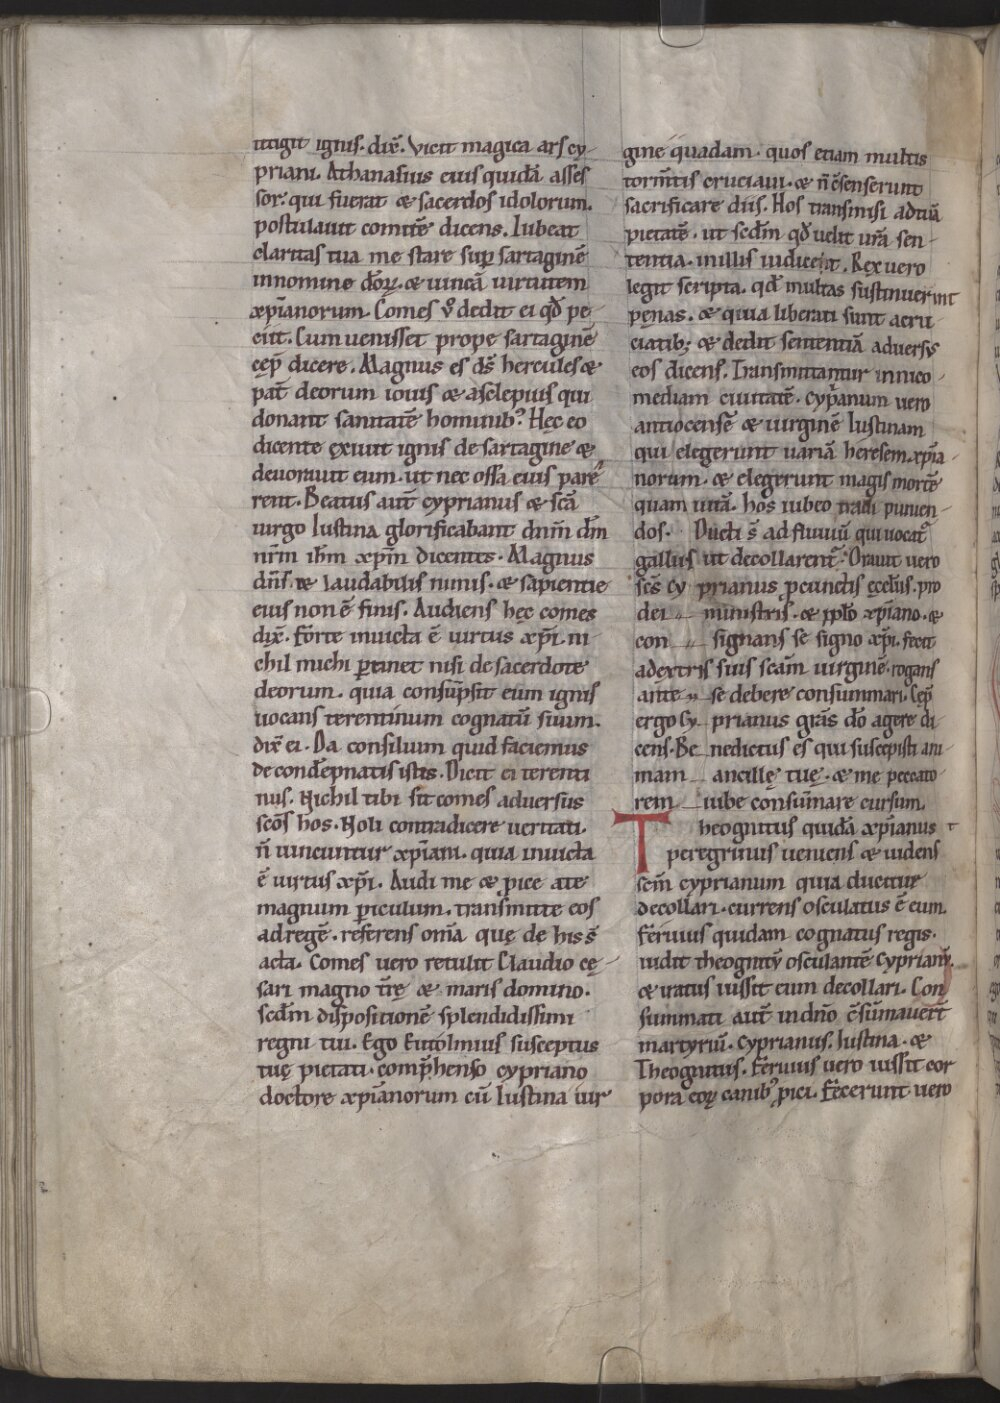 ttigit ignis. dix̄. Vicit magica ars cy-
priani. Athanasius eius quidā asses
sor. qui fuerat & sacerdos idolorum.
postulauit comitē dicens. Iubeat
claritas tua me stare sup̄ sartaginē
in nomine dōꝝ. & uincā uirtutem
xp̄ianorum. Comes v̊ dedit ei qđ pe
ciit. Cum uenisset prope sartaginē
cep̄ dicere. Magnus es ds̄ hercules &
pat̄ deorum iouis & asclepius qui
donant sanitatē hominib᾽. Hęc eo
dicente exiuit ignis de sartagine &
deuorauit eum. ut nec ossa eius parē
rent. Beatus aut̄ cyprianus & sc̄a
uirgo Iustina glorificabant dn̄m dm̄
nr̄m ihm̄ xp̄m dicentes. Magnus
dn̄s & laudabilis nimis. & sapientie
eius non ē finis. Audiens hęc comes
dix̄. Forte inuicta ē uirtus xp̄i. ni-
chil michi ꝑtinet nisi de sacerdote
deorum. quia consūpsit eum ignis
uocans terentinum cognatū suum.
dix̄ ei. Da consilium quid faciemus
de condēpnatis istis. Dicit ei terenti
nus. Nichil tibi sit comes aduersus
sc̄os hos. Noli contradicere ueritati.
n̄ uincuntur xp̄iani. quia inuicta
ē uirtus xp̄i. Audi me & ꝓice a te
magnum ꝑiculum. transmitte eos
ad regē. referens om̄ia quę de his s̄
acta. Comes uero retulit Claudio cę-
sari magno t̄rę & maris domino.
sedm̄ dispositionē splendidissimi
regni tui. Ego Eutolmius susceptus
tuę pietati. comp̄henso cypriano
doctore xp̄ianorum cū Iustina uir
gine quadam. quos etiam multis
torm̄tis cruciaui. & n̄ c̄senserunt
sacrificare diis. Hos transmisi ad tuā
pietatē. ut sedm̄ qđ uelit ur̄a sen-
tentia. in illis iudicent. Rex uero
legit scripta. qđ multas sustinuerint
penas. & quia liberati sunt a cru
ciatib; & dedit sententiā aduersus
eos dicens. Transmittantur in nico-
mediam ciuitatē. Cyp̄anum uero
antiocensē & uirginē Iustinam
qui elegerunt uariā heresem xp̄ia-
norum. & elegerunt magis mortē
quam uitā. hos iubeo tradi punien-
dos. Ducti s̄ ad fluuiū qui uocat᾽
gallus ut decollarent᾽. Orauit uero
scs̄ cy prianus ꝓ cunctis ęccliis. pro
dei ministris. & pplo xp̄iano. &
con signans se signo xp̄i. fecit
a dextris suis sc̄am uirginē. rogans
ante se debere consummari. Cep̄
ergo Cy prianus gr̄as dō agere di
cens. Be nedictus es qui suscepisti ani-
mam ancillę tuę. & me peccato-
rem iube consūmare cursum.
Theognitus quidā xp̄ianus
peregrinus ueniens & uidens
scm̄ cyprianum quia ducitur
decollari. currens osculatus ē eum.
Feruius quidam cognatus regis.
uidit theognitū osculantē Cyprianū.
& iratus iussit eum decollari. Con
summati aut̄ in dn̄o c̄sūmauer̄t
martyriū. Cyprianus. Iustina. &
Theognitus. Feruius uero iussit cor
pora eoꝝ canib᾽ ꝓici. Fecerunt uero